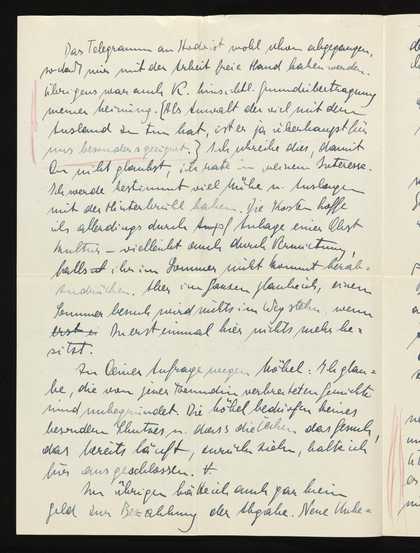 Das Telegramm an Hod ist wohl schon abgegangen,
sodaß wir mit der Arbeit freie Hand haben werden.
Übrigens war auch K. hinsichtl. Grundübertragung
meiner Meinung. (Als Anwalt der viel mit dem
Ausland zu tun hat, ist er ja überhaupt für
uns besonders geeignet.) Ich schreibe dies, damit
Du nicht glaubst, ich rate in meinem Interesse.
Ich werde bestimmt viel Mühe u. Auslagen
mit der Hinterbrühl haben. Die Kosten hoffe
ich allerdings durch Anlage einer Obst
kultur – vielleicht auch durch Vermietung,
falls ihr im Sommer nicht kommt herab-
zudrücken. Aber im ganzen glaube ich, einem
Sommer besuch wird nichts im Weg stehn, wenn
Du erst einmal hier nichts mehr be-
sitzt.
Zu Deiner Anfrage wegen Möbel: Ich glau-
be, die von jener Freundin verbreiteten Gerüchte
sind unbegründet. Die Möbel bedürfen keines
besondern Schutzes u. dass die das Gesuch,
das bereits läuft, zurückziehn, halte ich
für ausgeschlossen. +
Im übrigen hätte ich auch gar kein
geld zur Bezahlung der Abgabe. Neue